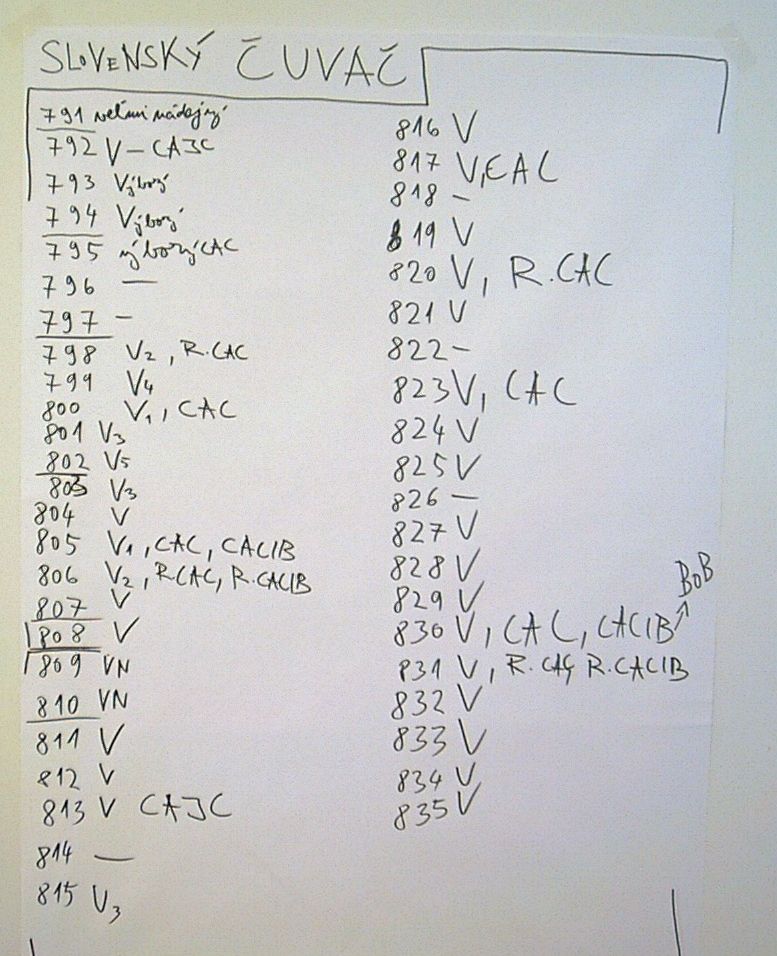 SLOVENSKÝ ČUVAČ
791 veľmi nádejný
792 V – CAJC
793 Výborý
794 Výborý
795 výborý CAC
796 —
797 –
798 V2, R.CAC
799 V4
800 V1, CAC
801 V3
802 V5
803 V3
804 V
805 V1, CAC, CACIB
806 V2, R.CAC, R.CACIB
807 V
808 V
809 VN
810 VN
811 V
812 V
813 V CAJC
814 —
815 V3
816 V
817 V, CAC
818 –
819 V
820 V, R.CAC
821 V
822 –
823 V, CAC
824 V
825 V
826 —
827 V
828 V
829 V
BOB
830 V, CAC, CACIB
831 V, R.CAC, R.CACIB
832 V
833 V
834 V
835 V